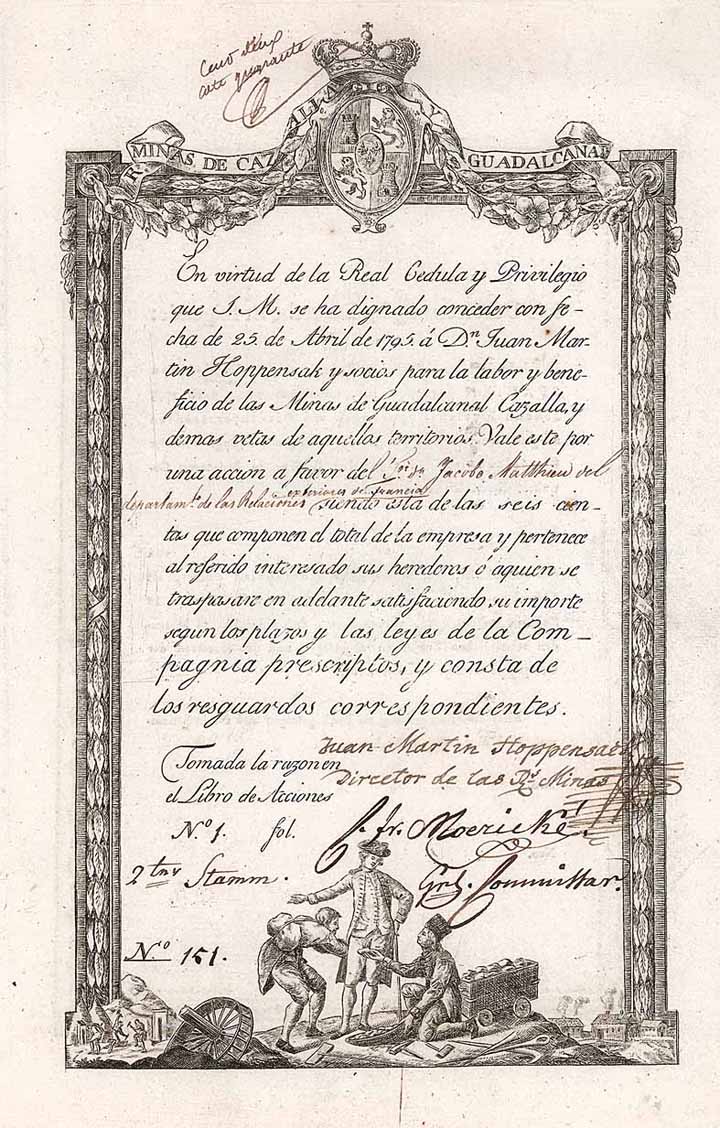 Cent deux
cate quarante
R. MINAS DE CAZALLA Y GUADALCANAL
En virtud de la Real Cedula y Privilegio
que S. M. se ha dignado conceder con fe-
cha de 25. de Abril de 1795. á Dn. Juan Mar-
tin Hoppensak y socios para la labor y bene-
ficio de las Minas de Guadalcanal Cazalla, y
demas vetas de aquellos territorios. Vale este por
una accion a favor del Jacobo Matthieu del
departamto. de las Relaciones exteriores de francia siendo esta de las seis cien-
tas que componen el total de la empresa y pertenece
al referido interesado sus herederos ó aquien se
traspasare en adelante satisfaciendo su importe
segun los plazos y las leyes de la Com-
pagnia prescriptos, y consta de
los resguardos correspondientes.
Juan Martin Hoppensack
Tomada la razon en
Director de las Rs. Minas
el Libro de Acciones
N.º 1. fol.
J. Fr. Moericke.
2 tnr Stamm.
Grl. Commissar.
N.º 151.